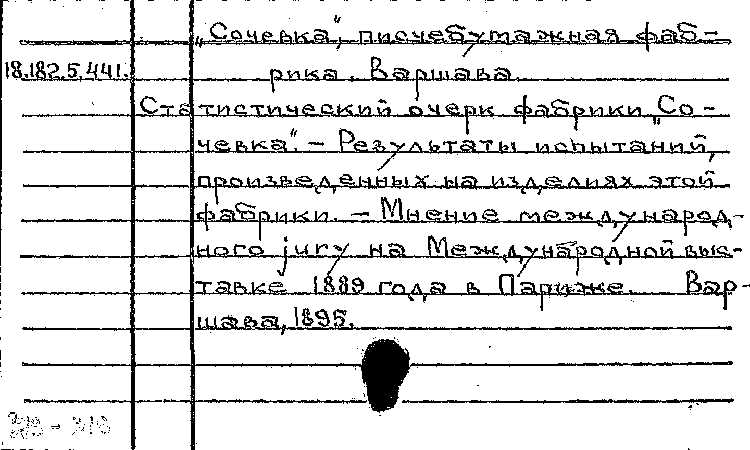 „Сочевка“, писчебумажная фаб-
18.182.5.441. рика. Варшава.
Статистический очерк фабрики „Со-
чевка“. – Результаты испытаний,
произведенных на изделиях этой
фабрики. – Мнение международ-
ного jury на Международной выс-
тавке 1889 года в Париже. Вар-
шава, 1895.